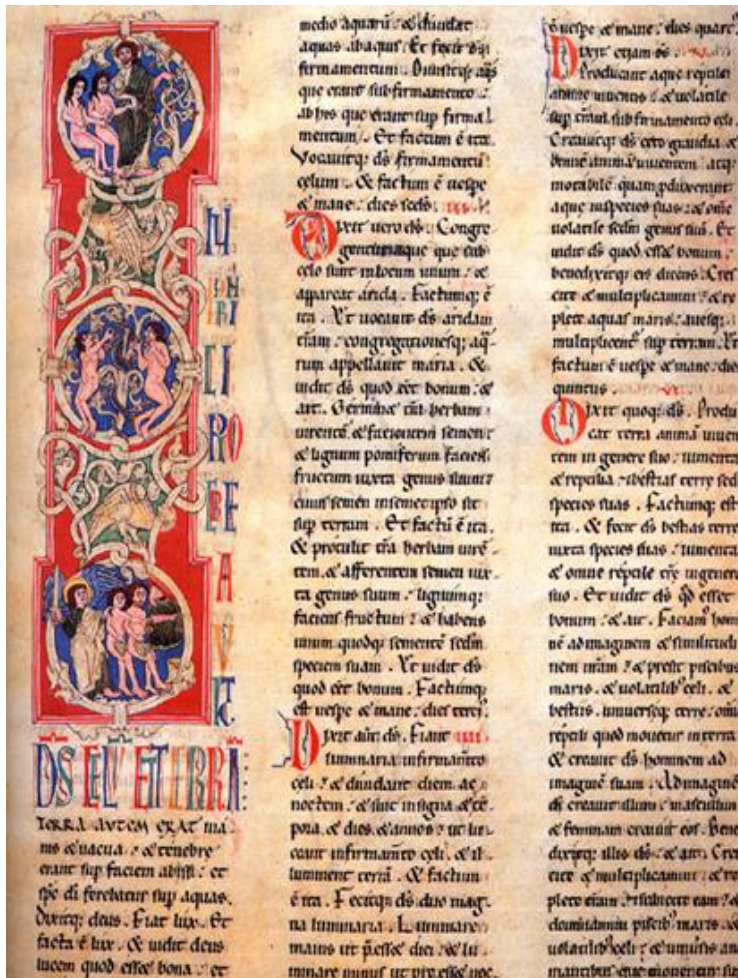 IT
DS CELU ET TERRA:
TERRA AUTEM ERAT ina
nis & uacua : & tenebre
erant sup faciem abissi : et
sps di ferebatur sup aquas.
Dixitq; deus. Fiat lux. Et
facta ē lux. & uidit deus
lucem quod esset bona : et
medio aquarū : & diuidat
aquas ab aquis. Et fecit ds
firmamentum. Diuisitq; aqs
que erant sub firmamento :
ab his que erant sup firma
mentum. Et factum ē ita.
Vocauitq; ds firmamentū
celum. & factum ē uespe
& mane : dies secds. III.
Dixit uero ds. Congre
gentur aque que sub
celo sunt in locum unum : &
appareat arida. Factumq; ē
ita. Et uocauit ds aridam
trām : congregationesq; aq
rum appellauit maria. &
uidit ds quod eēt bonum : &
ait. Germinet trā herbam
uirentē & facientem semen :
& lignum pomiferum faciens
fructum iuxta genus suum :
cuius semen in semet ipso sit
sup terram. Et factū ē ita.
& protulit trā herbam uirē
tem. & afferentem semen iux
ta genus suum : lignumq;
faciens fructum : & habens
unum quodq; sementē sedm
speciem suam. Et uidit ds
quod eēt bonum. Factumq;
est uespe & mane : dies terci⁹.
Dixit aūt ds. Fiant IIII.
luminaria in firmam̄to
celi : & diuidant diem ac
noctem : & sint in signa & tē
pora. & dies & annos : ut lu
ceant in firmam̄to celi. & il
luminent terrā. & factum
ē ita. Fecitq; ds duo mag
na luminaria. Luminare
maius ut p̄esset diei : & lu
minare minus ut pre esset noc
ē uespe & mane : dies quart⁹.
Dixit etiam ds.
Producant aque reptile
anime uiuentis : & uolatile
sup trām sub firmamento celi.
Creauitq; ds cete grandia. &
omnē animā uiuentem atq;
motabilē quam pduxerant
aque in species suas : & om̄e
uolatile sedm genus suū. Et
uidit ds quod esset bonum :
benedixitq; eis dicens. Cres
cite & multiplicamini : & re
plete aquas maris : auesq;
multiplicent̄ sup terram. Et
factum ē uespe & mane : dies
quintus. VI.
Dixit quoq; ds. Produ
cat terra animā uiuen
tem in genere suo : iumenta
& reptilia : & bestias terre sedm
species suas. Factumq; est
ita. & fecit ds bestias terre
iuxta species suas : iumenta
& omne reptile tr̄e in genere
suo. Et uidit ds qd esset
bonum : & ait. Faciam⁹ hom
nē ad imaginem & similitudi
nem nrām : & presit piscibus
maris. & uolatilib⁹ celi. &
bestiis. uniuerseq; terre : omīq;
reptili quod mouetur in terra
& creauit ds hominem ad
imaginē suam : Ad imaginē
di creauit illum : masculum
& feminam creauit eos. Bene
dixitq; illis ds : & ait. Cres
cite & multiplicamini : & re
plete trām : & subicite eam : &
dominamini piscib⁹ maris. &
uolatilib⁹ celi : & uniūsis an
mantibus que mouentur sup